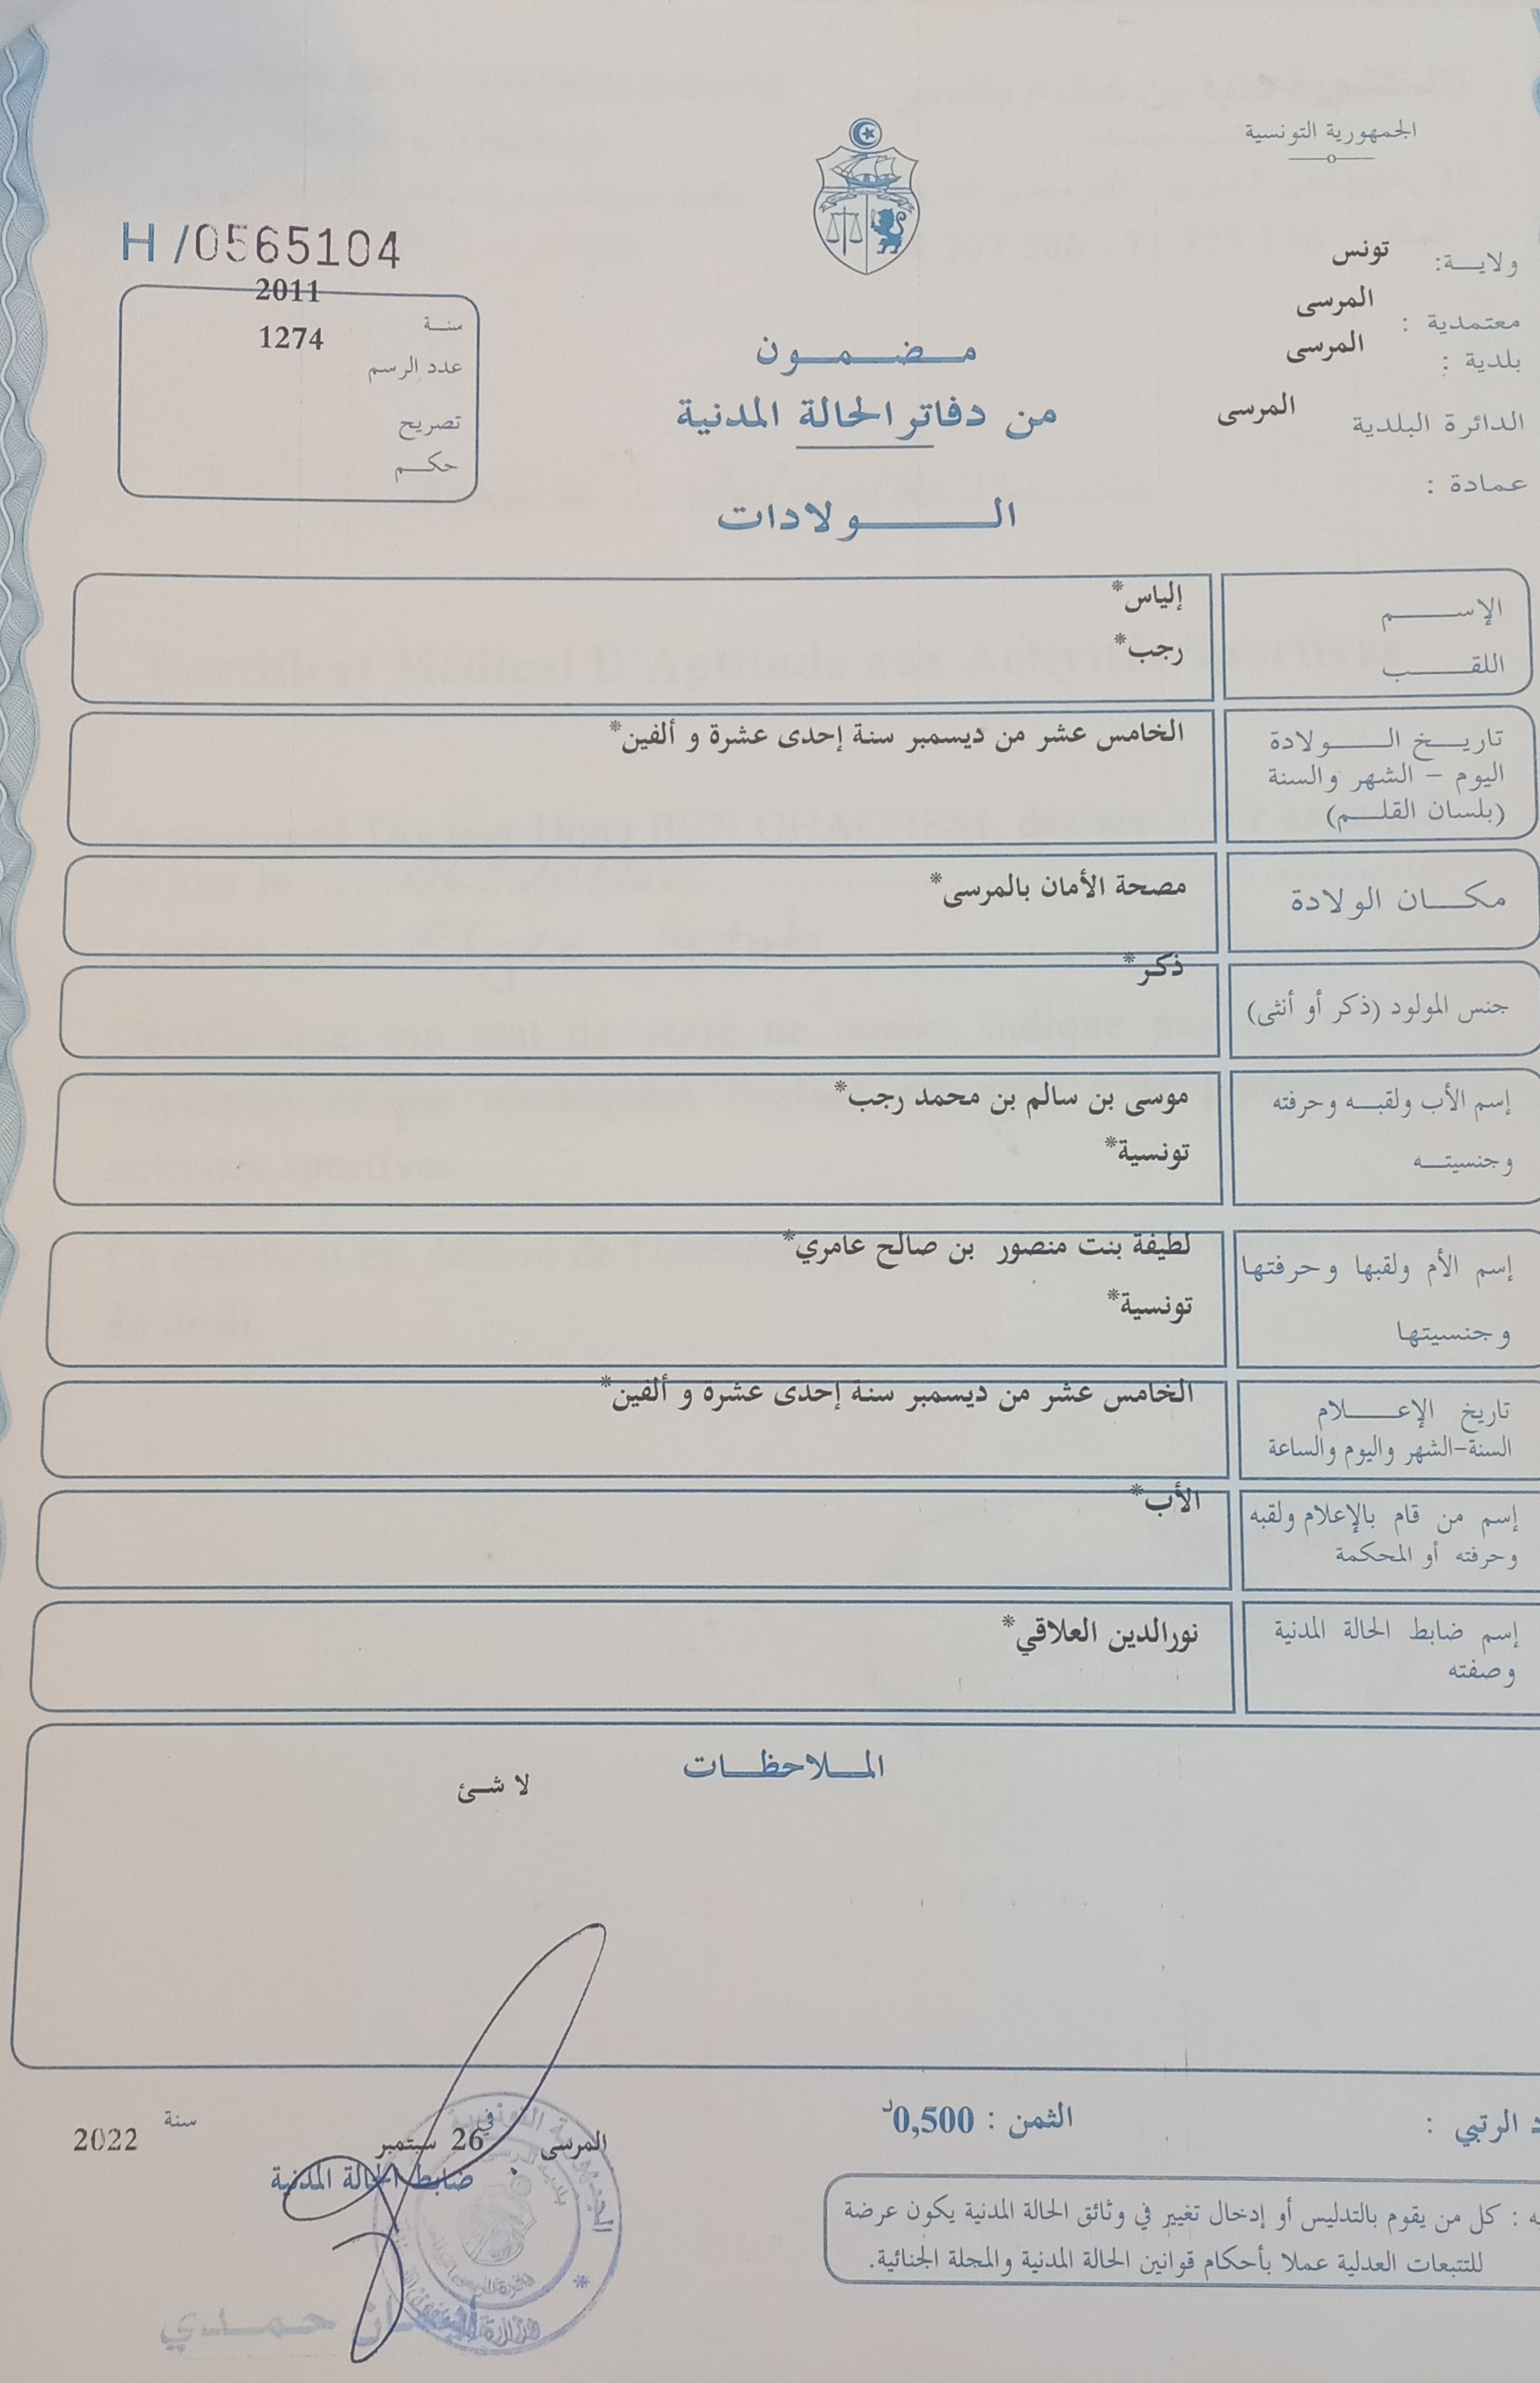 الجمهورية التونسية
ولاية: تونس
معتمدية : المرسى
بلدية : المرسى
الدائرة البلدية المرسى
عمادة :
H /0565104
سنة 2011
عدد الرسم 1274
تصريح
حكم
مضمون
من دفاتر الحالة المدنية
الولادات
الإسم إلياس*
اللقب رجب*
تاريخ الولادة الخامس عشر من ديسمبر سنة إحدى عشرة و ألفين*
اليوم – الشهر والسنة
(بلسان القلم)
مكان الولادة مصحة الأمان بالمرسى*
جنس المولود (ذكر أو أنثى) ذكر*
إسم الأب ولقبه وحرفته موسى بن سالم بن محمد رجب*
وجنسيته تونسية*
إسم الأم ولقبها وحرفتها لطيفة بنت منصور بن صالح عامري*
وجنسيتها تونسية*
تاريخ الإعلام الخامس عشر من ديسمبر سنة إحدى عشرة و ألفين*
السنة-الشهر واليوم والساعة
إسم من قام بالإعلام ولقبه الأب*
وحرفته أو المحكمة
إسم ضابط الحالة المدنية نورالدين العلاقي*
وصفته
الملاحظات
لا شئ
د الرتبي :
الثمن : 0,500د
المرسى في 26 سبتمبر سنة 2022
ضابط الحالة المدنية
يه : كل من يقوم بالتدليس أو إدخال تغيير في وثائق الحالة المدنية يكون عرضة
للتتبعات العدلية عملا بأحكام قوانين الحالة المدنية والمجلة الجنائية.
حمدي